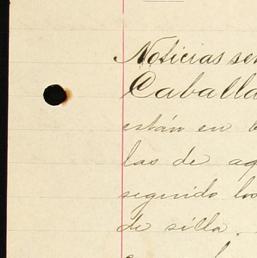 Noticias ser
Caballa
están en
las de ag
seguido los
de silla.